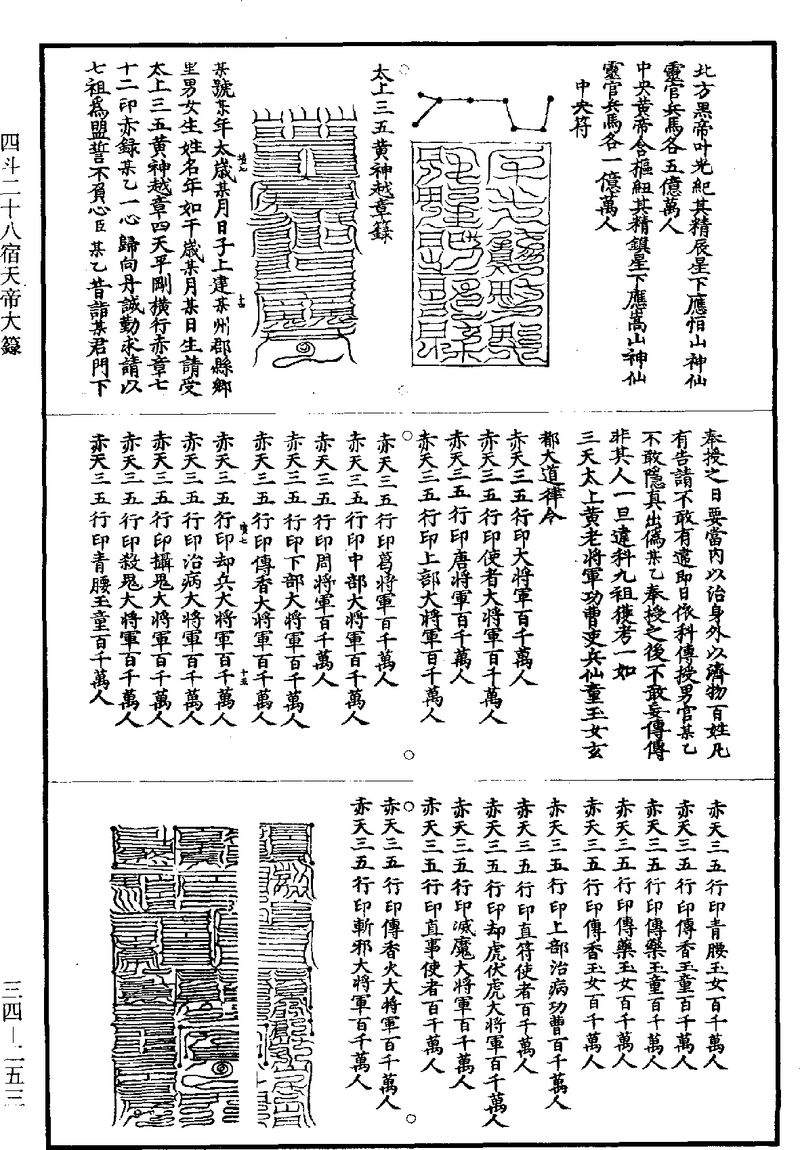 北方黑帝叶光紀其精辰星下應恒山神仙
靈官兵馬各五億萬人
中央黄帝含樞紐其精鎮星下應嵩山神仙
靈官兵馬各一億萬人
中央符
太上三五黄神越章籙
某號某年太歲某月日子上建某州郡縣鄉
里男女生姓名年如干歲某月某日生請受
太上三五黄神越章四天平剛橫行赤章七
十二印赤錄某乙一心歸向丹誠勤求請以
七祖爲盟誓不負心臣某乙昔詣某君門下
奉授之日要當内以治身外以濟物百姓凡
有告請不敢有違即日依科傳授男官某乙
不敢隱真出僞某乙奉授之後不敢妄傳傳
非其人一旦違科九祖獲考一如
三天太上黄老將軍功曹吏兵仙童玉女玄
都大道律令
赤天三五行印大將軍百千萬人
赤天三五行印使者大將軍百千萬人
赤天三五行印唐將軍百千萬人
赤天三五行印上部大將軍百千萬人
赤天三五行印葛將軍百千萬人
赤天三五行印中部大將軍百千萬人
赤天三五行印周將軍百千萬人
赤天三五行印下部大將軍百千萬人
赤天三五行印傳香大將軍百千萬人
十五
赤天三五行印却兵大將軍百千萬人
赤天三五行印治病大將軍百千萬人
赤天三五行印攝鬼大將軍百千萬人
赤天三五行印殺鬼大將軍百千萬人
赤天三五行印青腰玉童百千萬人
赤天三五行印青腰玉女百千萬人
赤天三五行印傳香玉童百千萬人
赤天三五行印傳藥玉童百千萬人
赤天三五行印傳藥玉女百千萬人
赤天三五行印傳香玉女百千萬人
赤天三五行印上部治病功曹百千萬人
赤天三五行印直符使者百千萬人
赤天三五行印却虎伏虎大將軍百千萬人
赤天三五行印滅魔大將軍百千萬人
赤天三五行印直事使者百千萬人
赤天三五行印傳香火大將軍百千萬人
赤天三五行印斬邪大將軍百千萬人
四斗二十八宿天帝大籙
三四—二五三